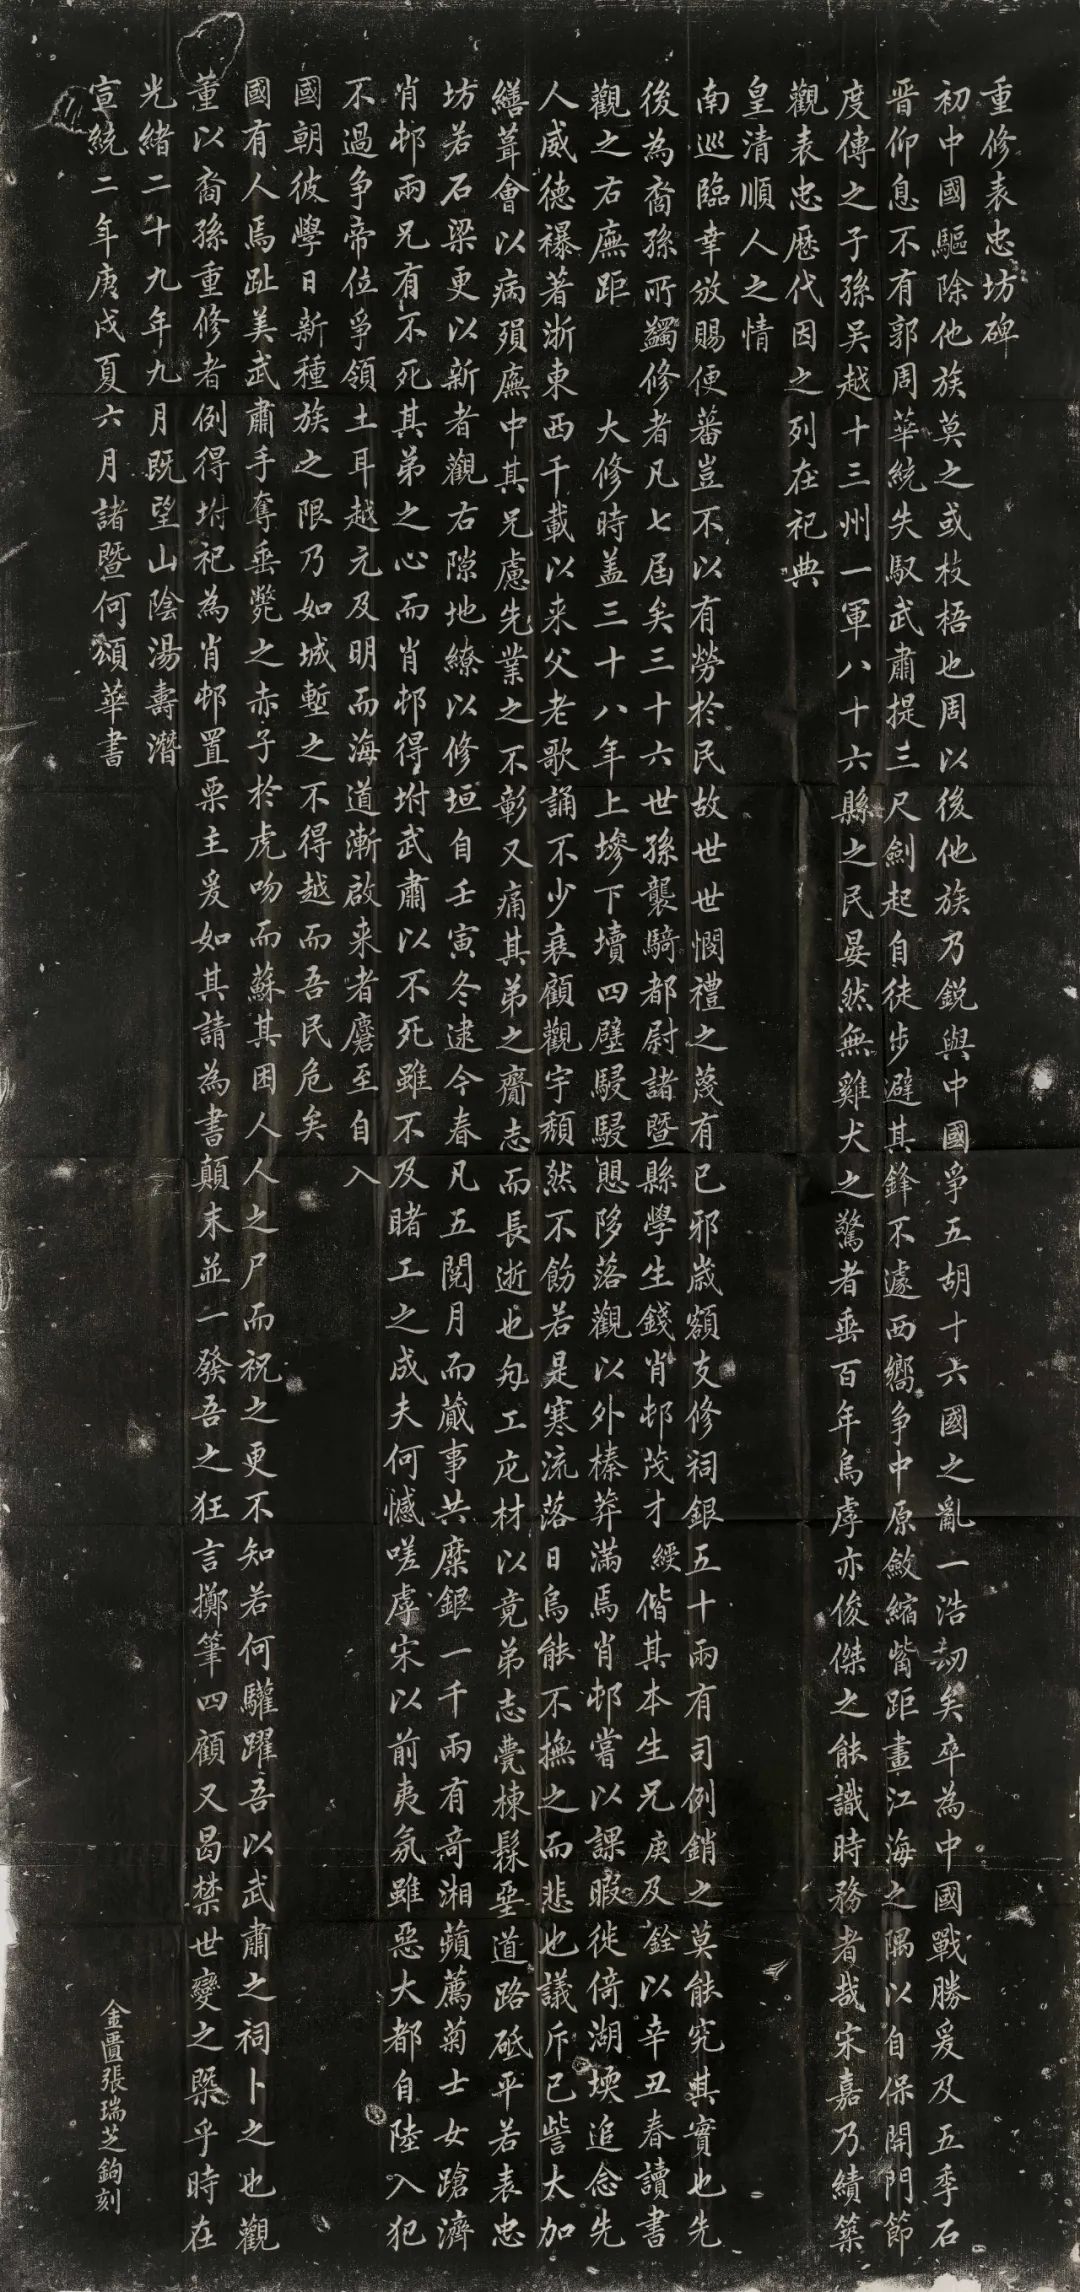 重修表忠坊碑
初中國驅除他族莫之或枝梧也周以後他族乃銳與中國爭五胡十六國之亂一浩劫矣卒為中國戰勝爰及五季石
晋仰息不有郭周華統失馭武肅提三尺劍起自徒步避其鋒不遽西嚮争中原斂縮觜距畫江海之隅以自保開門節
度傳之子孫吴越十三州一軍八十六縣之民晏然無雞犬之驚者垂百年烏虖亦俊傑之能識時務者哉宋嘉乃績築
觀表忠歷代因之列在祀典
皇清順人之情
南巡臨幸放賜便蕃豈不以有勞於民故世世憫禮之蔑有已邪歲額支修祠銀五十兩有司例銷之莫能究其實也先
後為裔孫所蠲修者凡七屆矣三十六世孫襲騎都尉諸暨縣學生錢肖邨茂才綬偕其本生兄庚及銓以辛丑春讀書
觀之右廡距　大修時盖三十八年上墋下墳四壁駸駸愳陊落觀以外榛莽滿焉肖邨嘗以課暇徙倚湖堧追念先
人威德襮著浙東西千載以来父老歌誦不少衰顧觀宇頹然不飭若是寒流落日烏能不撫之而悲也議斥己訾大加
繕葺會以病殞廡中其兄慮先業之不彰又痛其弟之齎志而長逝也勼工庀材以竟弟志甍棟髹堊道路砥平若表忠
坊若石梁更以新者觀右隙地繚以修垣自壬寅冬逮今春凡五閱月而蕆事共糜銀一千兩有奇湘蘋薦菊士女蹌濟
肖邨兩兄有不死其弟之心而肖邨得坿武肅以不死雖不及睹工之成夫何憾嗟虖宋以前夷氛雖惡大都自陸入犯
不過争帝位爭領土耳越元及明而海道漸啟来者麕至自入
國朝彼學日新種族之限乃如城塹之不得越而吾民危矣
國有人焉趾美武肅手奪垂斃之赤子於虎吻而蘇其困人人之尸而祝之更不知若何驩躍吾以武肅之祠卜之也觀
董以裔孫重修者例得坿祀為肖邨置栗主爰如其請為書顛末並一發吾之狂言擲筆四顧又曷禁世變之槩乎時在
光緒二十九年九月既望山陰湯壽潛
宣統二年庚戌夏六月諸暨何頌華書
金匱張瑞芝鉤刻